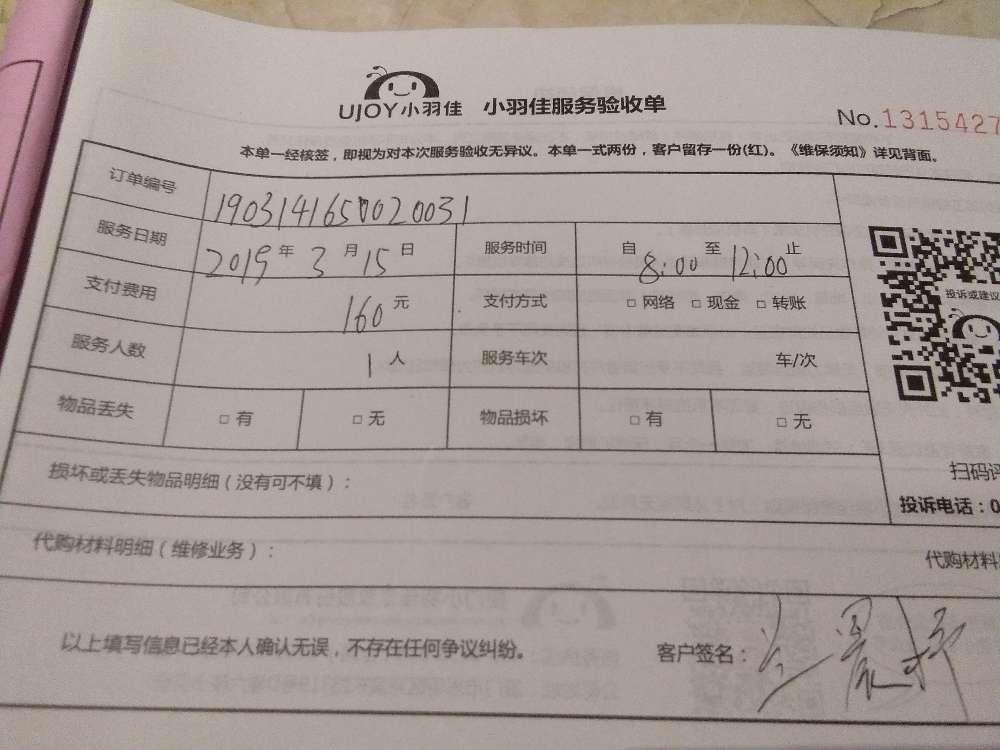 UJOY小羽佳 小羽佳服务验收单
No.1315427
本单一经核签，即视为对本次服务验收无异议。本单一式两份，客户留存一份(红)。《维保须知》详见背面。
订单编号 1903141650020031
服务日期 2019年3月15日 服务时间 自8:00至12:00止
支付费用 160元 支付方式 □网络 □现金 □转账
投诉或建议
服务人数 1人 服务车次 车/次
物品丢失 □有 □无 物品损坏 □有 □无
损坏或丢失物品明细（没有可不填）： 扫码评
投诉电话：0
代购材料明细（维修业务）： 代购材料
以上填写信息已经本人确认无误，不存在任何争议纠纷。 客户签名：